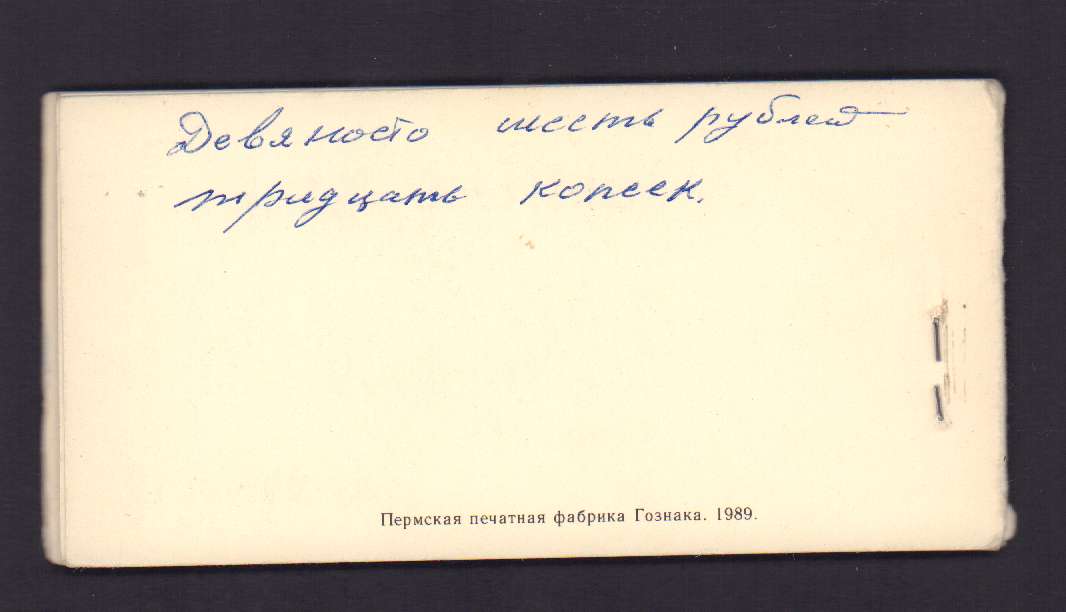 Девяносто шесть рублей
тридцать копеек.
Пермская печатная фабрика Гознака. 1989.